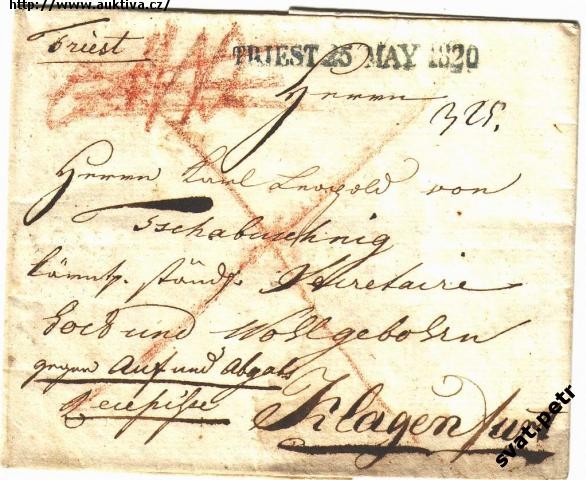 http://www.auktiva.cz/
Triest
TRIEST 25 MAY 1820
Herrn
Herrn Karl Leopold von
Tschabuschnig
kärnt. ständ. Secretaire
Hoch und Wohlgebohrn
gegen Auf und Abgabs
Recepisse
Klagenfurt
svat.petr